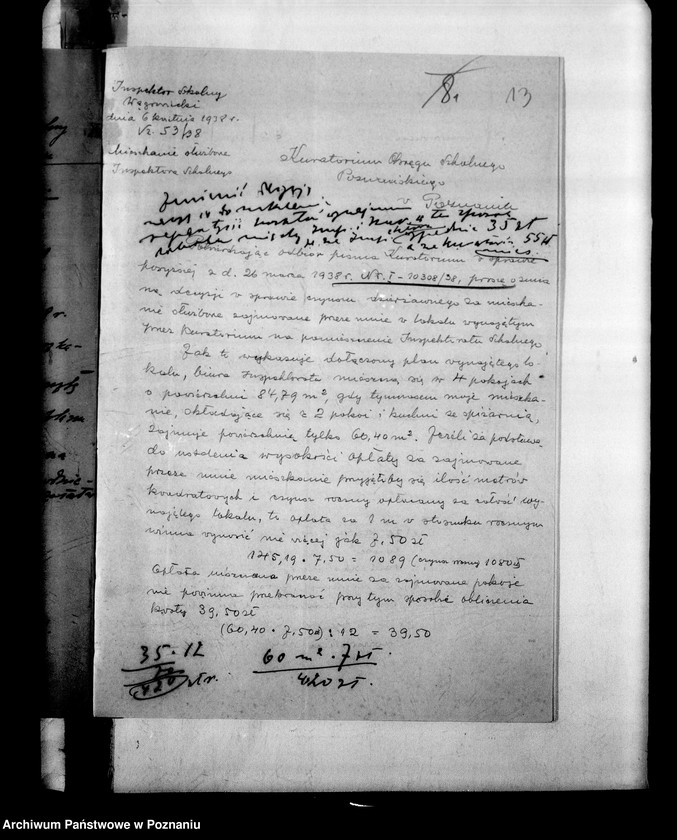 8.
13
Inspektor Szkolny
Wągrowiecki
dnia 6 kwietnia 1938 r.
53/38
Mieszkanie służbowe
Inspektora Szkolnego
Kuratorium Okręgu Szkolnego
Poznańskiego
w Poznaniu
Zmienić
35 zł
55 zł
odbiór pisma Kuratorium w sprawie
powyższej z d. 26 marca 1938 r. Nr. I - 10308/38, proszę o zmia
nę decyzji w sprawie czynszu dzierżawnego za mieszka-
nie służbowe zajmowane przeze mnie w lokalu wynajętym
przez Kuratorium na pomieszczenie Inspektoratu Szkolnego
Jak to wykazuje dołączony plan wynajętego lo-
kalu, biura Inspektoratu mieszczą się w 4 pokojach
o powierzchni 84,79 m², gdy tymczasem moje mieszka-
nie, składające się z 2 pokoi i kuchni ze spiżarnią,
zajmuje powierzchnię tylko 60,40 m². Jeśli za podstawę
do ustalenia wysokości opłaty za zajmowane
przeze mnie mieszkanie przyjęłoby się ilość metrów
kwadratowych i czynsz roczny opłacany za całość wy-
najętego lokalu, to opłata za 1 m w stosunku rocznym
winna wynosić nie więcej jak 7,50 zł
145,19 . 7,50 = 1089 (czynsz roczny 1080 zł)
Opłata uiszczana przeze mnie za zajmowane pokoje
nie powinna przekraczać przy tym sposobie obliczenia
kwoty 39,50 zł
(60,40 . 7,50 zł) : 12 = 39,50
35 . 12
60 m² . 7 zł.
420 zł.
Archiwum Państwowe w Poznaniu